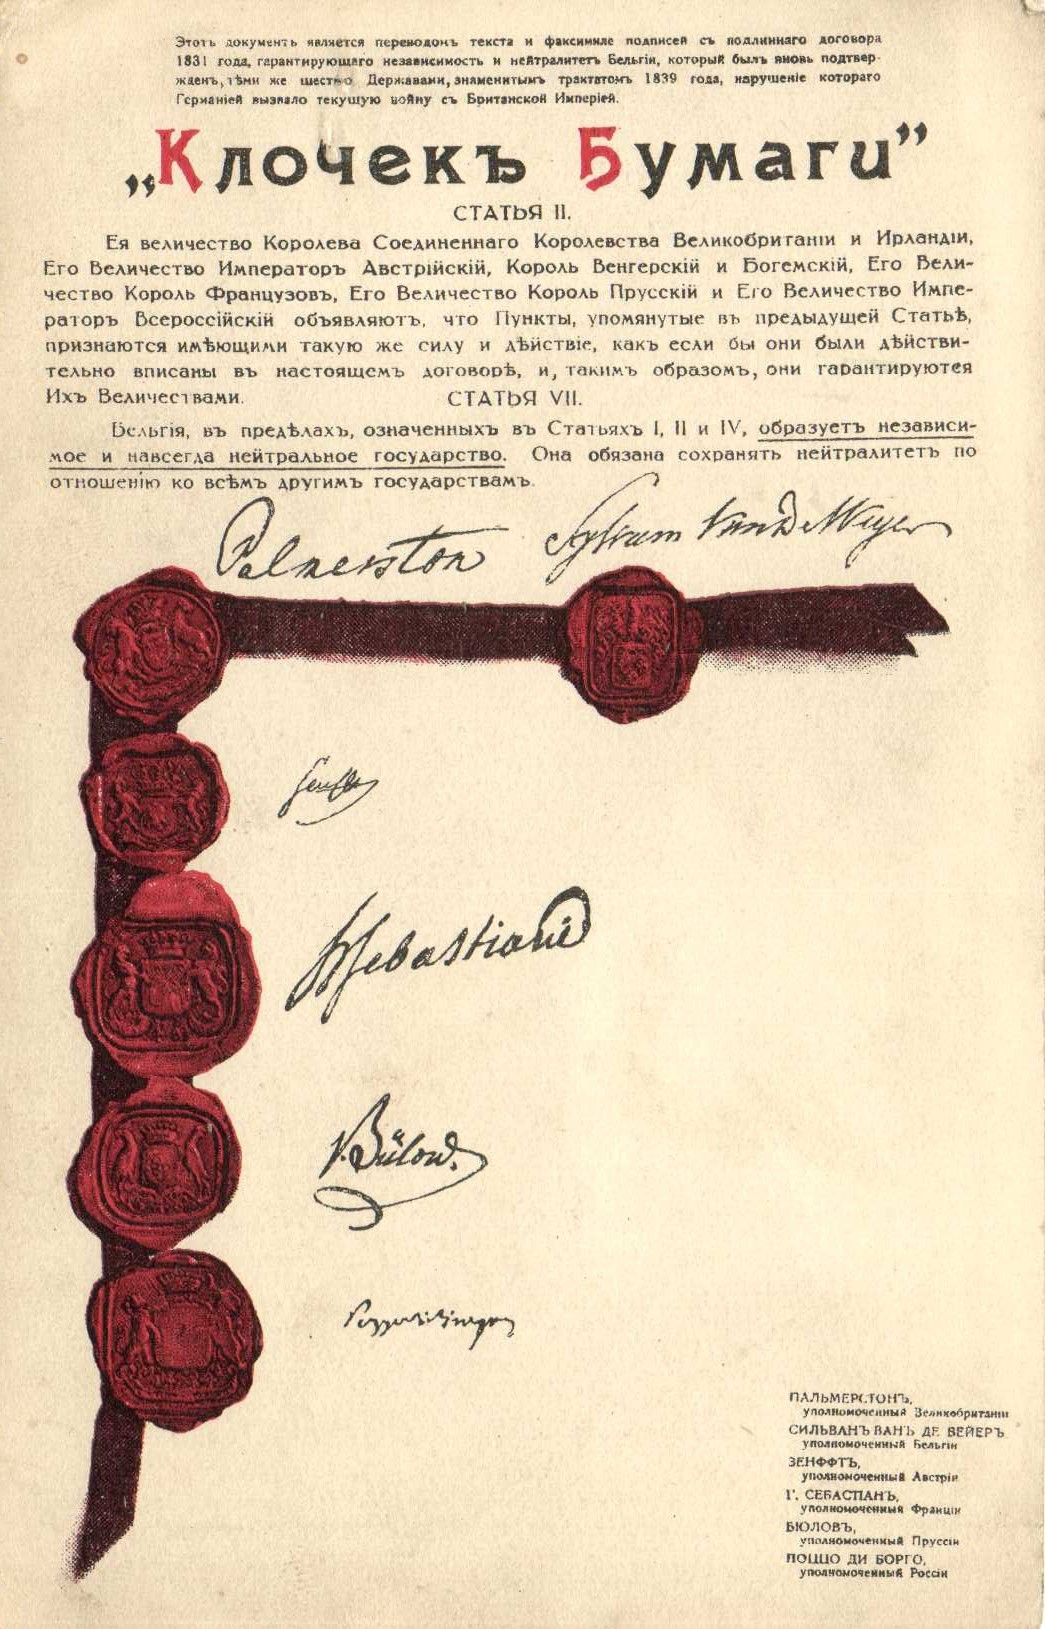 Этотъ документъ является переводомъ текста и факсимиле подписей съ подлиннаго договора
1831 года, гарантирующаго независимость и нейтралитетъ Бельгіи, который былъ вновь подтвер-
жденъ, тѣми же шестью Державами, знаменитымъ трактатомъ 1839 года, нарушеніе котораго
Германіей вызвало текущую войну съ Британской Имперіей.
„Клочекъ Бумаги”
СТАТЬЯ II.
Ея величество Королева Соединеннаго Королевства Великобританіи и Ирландіи,
Его Величество Императоръ Австрійскій, Король Венгерскій и Богемскій, Его Вели-
чество Король Французовъ, Его Величество Король Прусскій и Его Величество Импе-
раторъ Всероссійскій объявляютъ, что Пункты, упомянутые въ предыдущей Статьѣ,
признаются имѣющими такую же силу и дѣйствіе, какъ если бы они были дѣйстви-
тельно вписаны въ настоящемъ договорѣ, и, такимъ образомъ, они гарантируются
Ихъ Величествами.
СТАТЬЯ VII.
Бельгія, въ предѣлахъ, означенныхъ въ Статьяхъ I, II и IV, образуетъ независи-
мое и навсегда нейтральное государство. Она обязана сохранять нейтралитетъ по
отношенію ко всѣмъ другимъ государствамъ.
Palmerston Sylvain Van de Weyer
Senfft
H Sebastiani
v. Bülow.
ПАЛЬМЕРСТОНЪ,
уполномоченный Великобританіи
СИЛЬВАНЪ ВАНЪ ДЕ ВЕЙЕРЪ
уполномоченный Бельгіи
ЗЕНФФТЪ,
уполномоченный Австріи
Г. СЕБАСТІАНЪ,
уполномоченный Франціи
БЮЛОВЪ,
уполномоченный Пруссіи
ПОЦЦО ДИ БОРГО,
уполномоченный Россіи